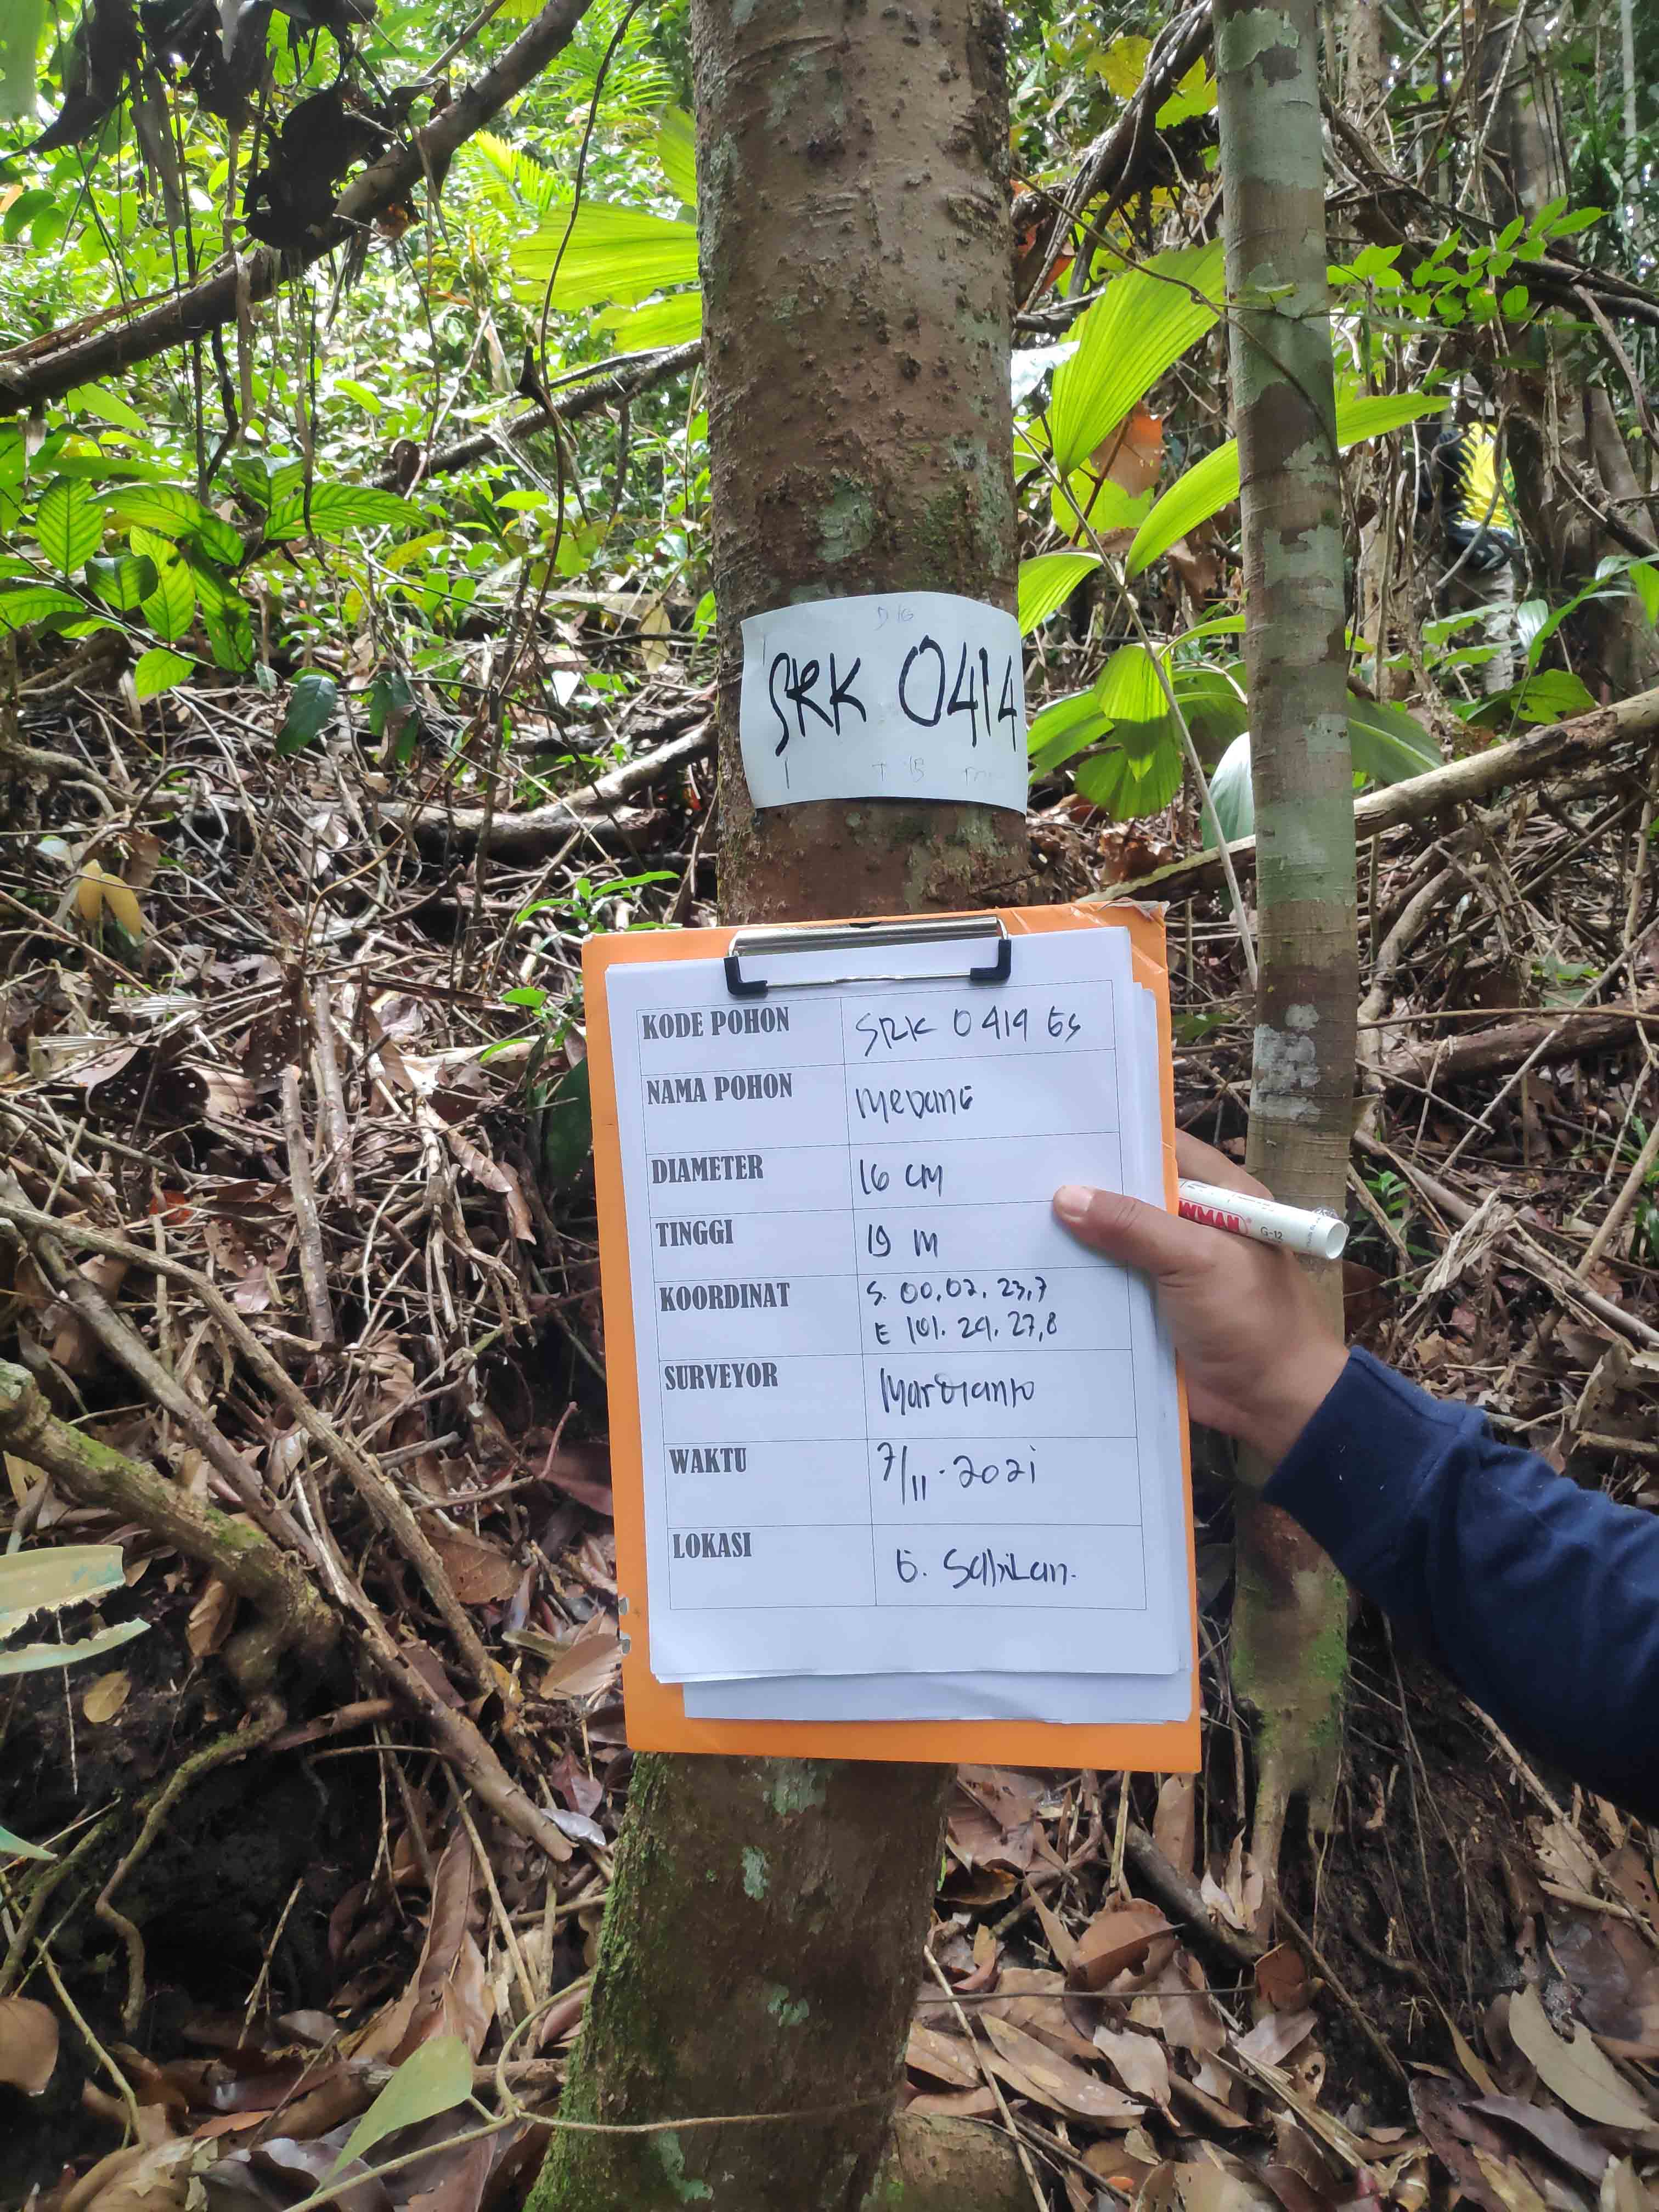 D 16
SRK 0414
T 15 m
KODE POHON SRK 0414 GS
NAMA POHON MeDanG
DIAMETER 16 CM
TINGGI 19 M
KOORDINAT S. 00.02. 23,7
E 101. 29. 27,8
SURVEYOR MarDianto
WAKTU 7/11-2021
LOKASI G. SahiLan.
WMAN
G-12